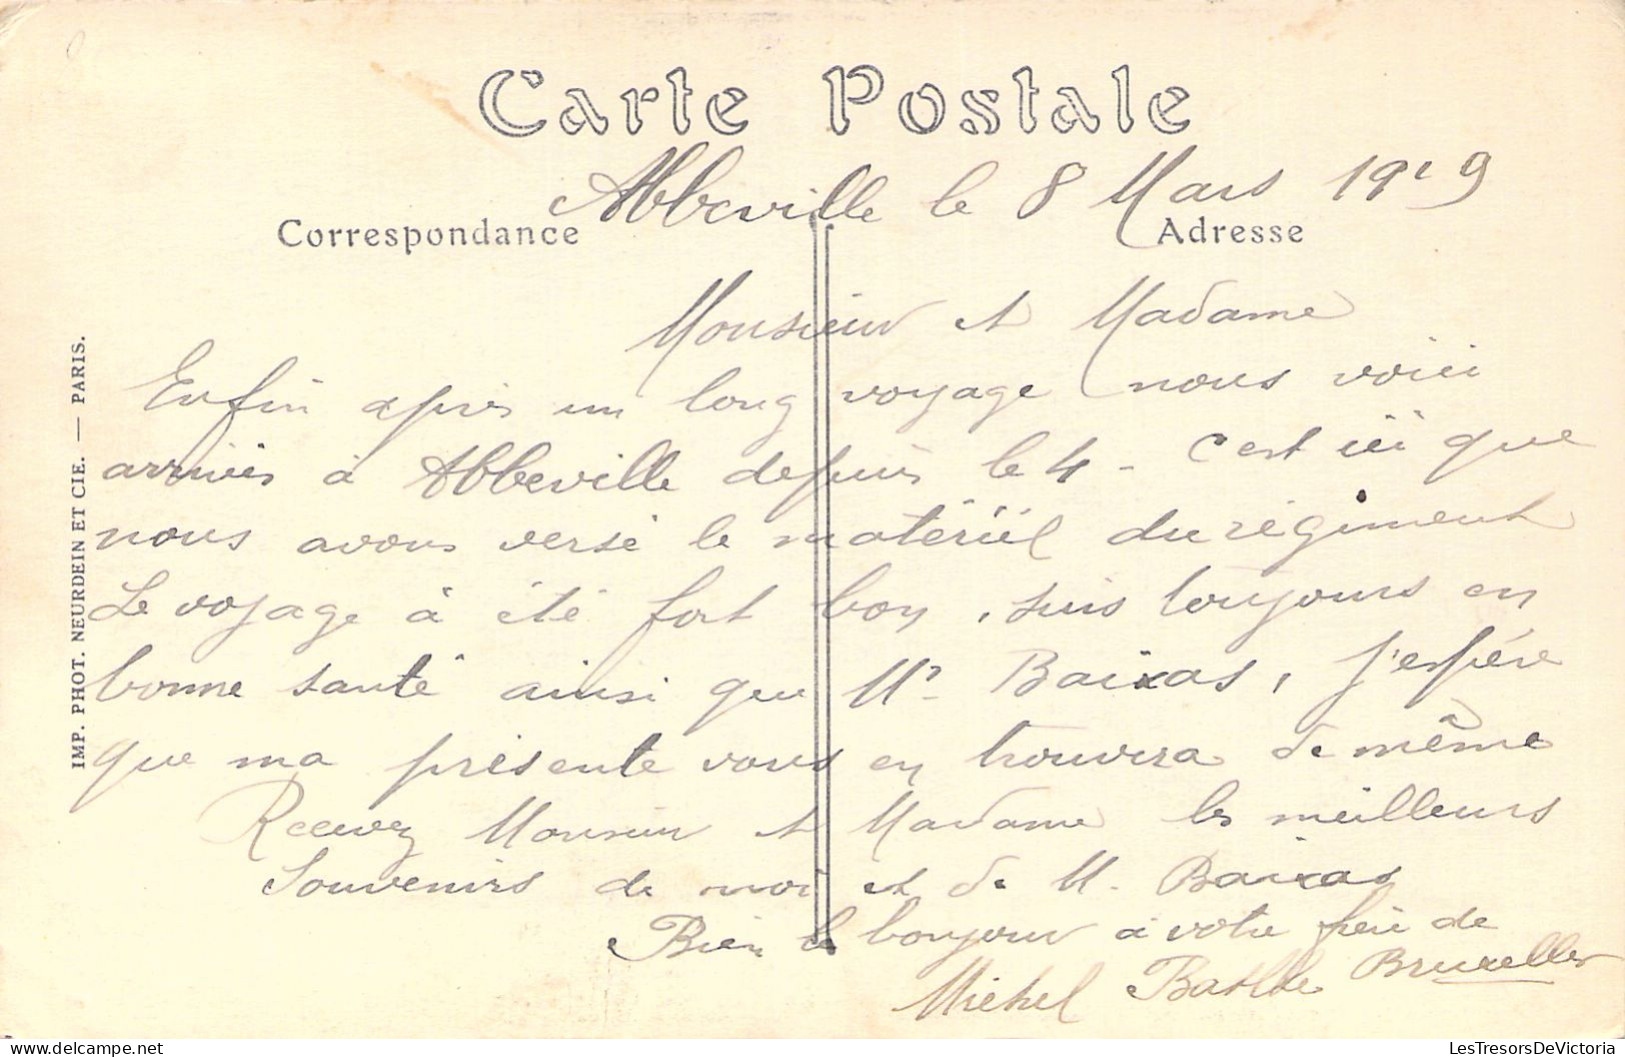 Carte Postale
Abbeville le 8 Mars 1919
Correspondance
Adresse
Monsieur et Madame
Enfin après un long voyage nous voici
arrivés à Abbeville depuis le 4 - C'est ici que
nous avons versé le matériel du régiment
Le voyage à été fort bon, suis toujours en
bonne santé ainsi que Mr. Baixas, j'espère
que ma présente vous en trouvera de même
Recevez Monsieur et Madame les meilleurs
Souvenirs de moi et de M. Baixas
Bien le bonjour à votre frère de
Bruxelles
Michel
IMP. PHOT. NEURDEIN ET CIE. — PARIS.
LesTresorsDeVictoria
www.delcampe.net